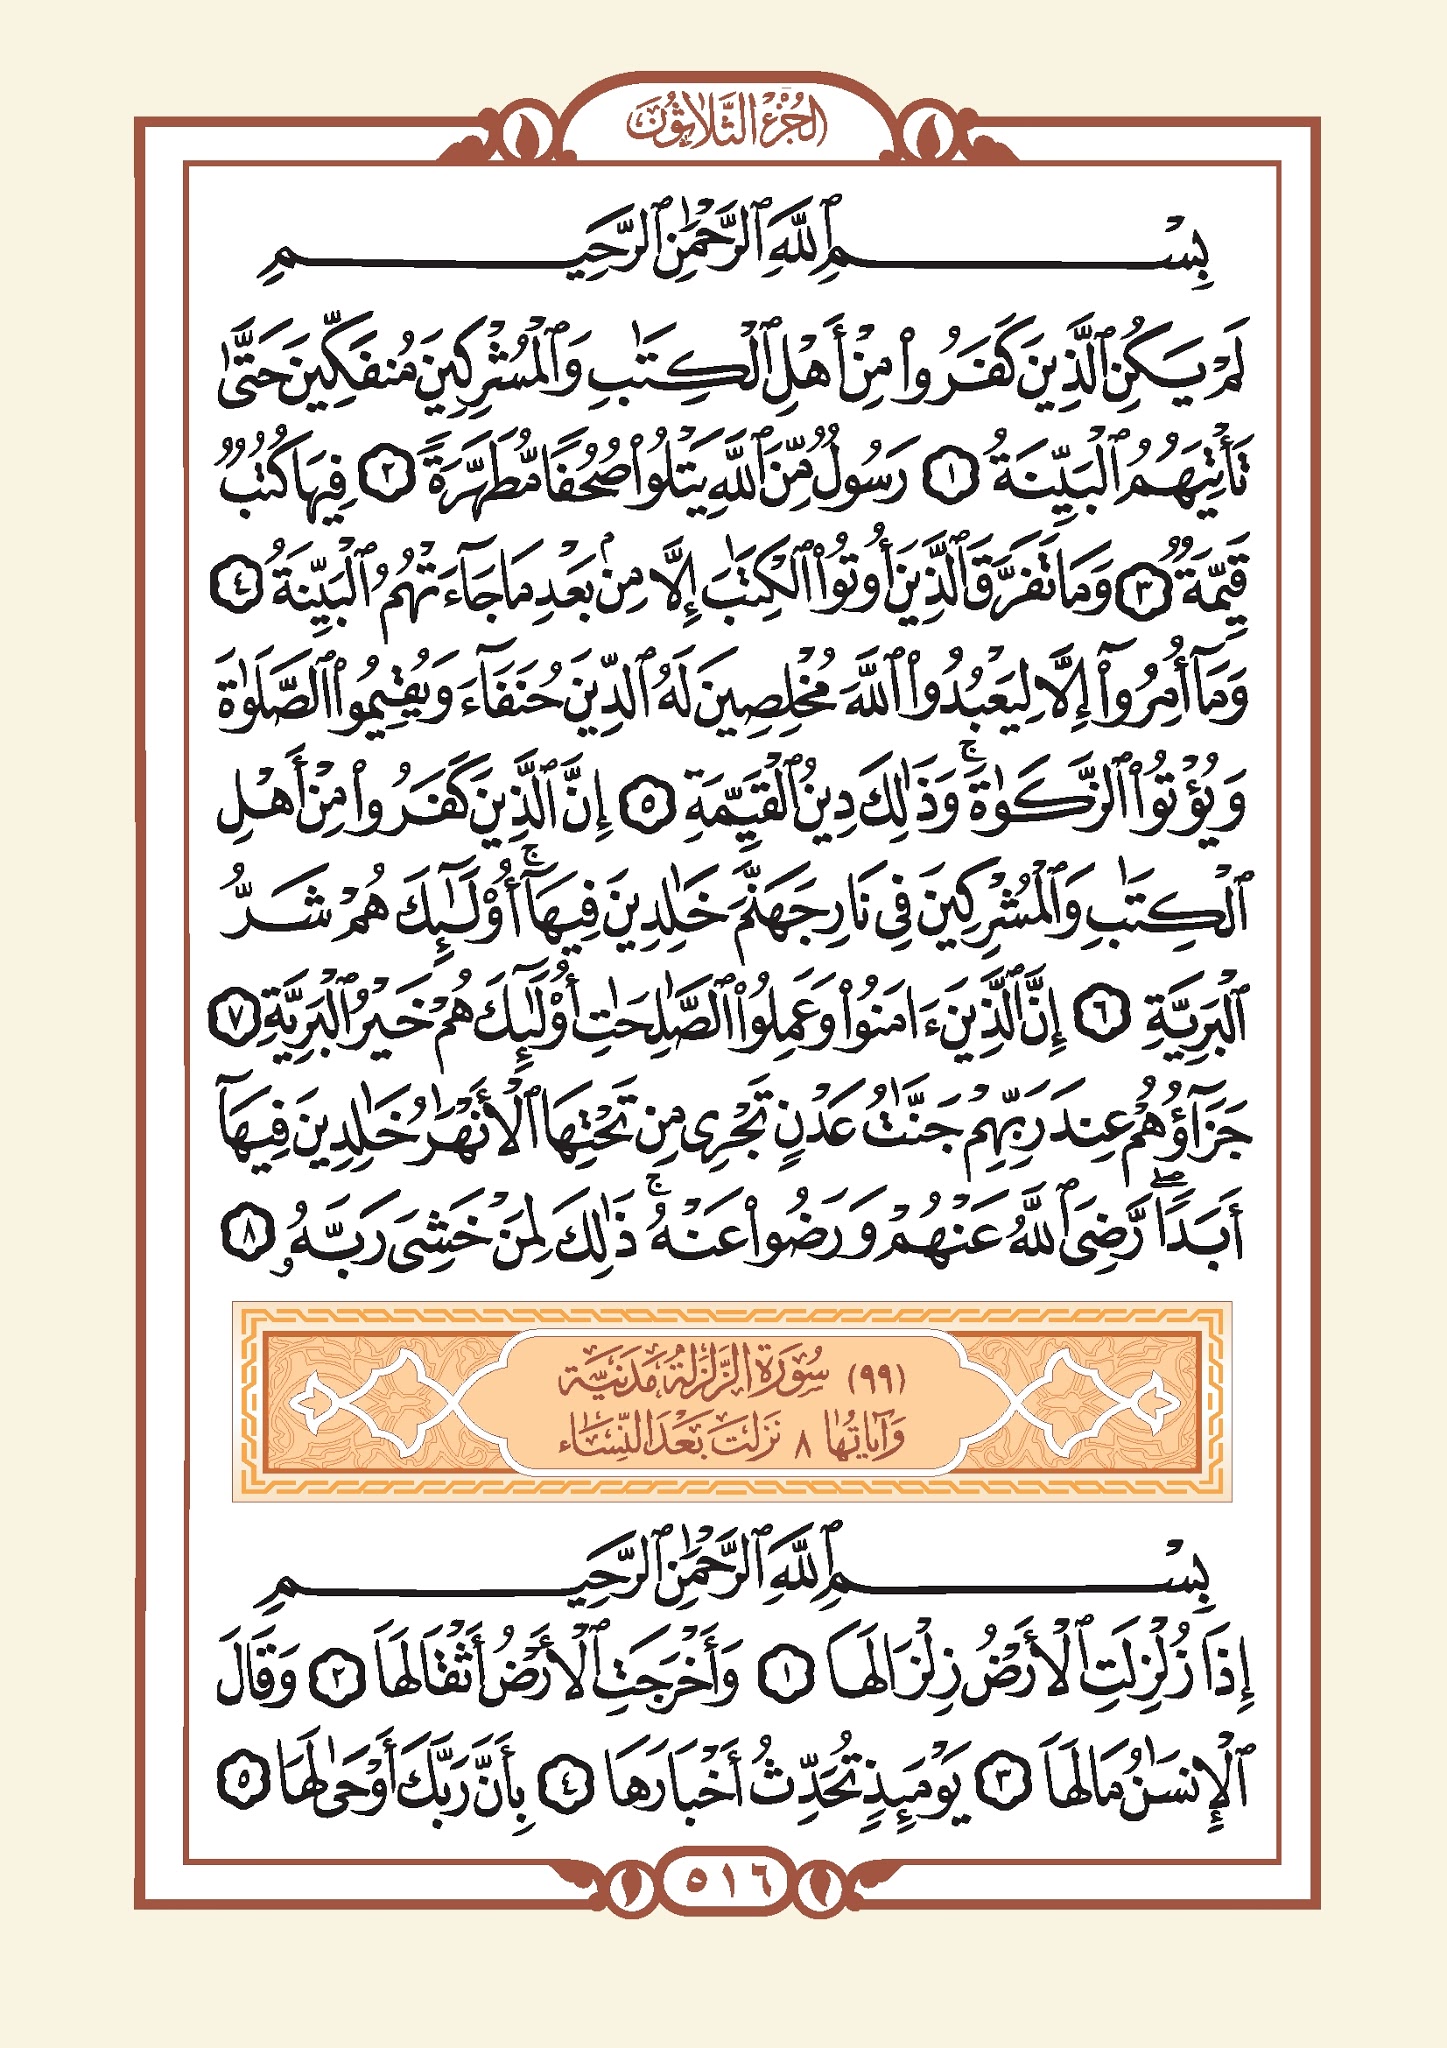 الجُزْءُ الثَّلَاثُونَ
بِسْمِ ٱللَّهِ ٱلرَّحْمَٰنِ ٱلرَّحِيمِ
لَمْ يَكُنِ ٱلَّذِينَ كَفَرُوا۟ مِنْ أَهْلِ ٱلْكِتَٰبِ وَٱلْمُشْرِكِينَ مُنفَكِّينَ حَتَّىٰ
تَأْتِيَهُمُ ٱلْبَيِّنَةُ ١ رَسُولٌ مِّنَ ٱللَّهِ يَتْلُوا۟ صُحُفًا مُّطَهَّرَةً ٢ فِيهَا كُتُبٌ
قَيِّمَةٌ ٣ وَمَا تَفَرَّقَ ٱلَّذِينَ أُوتُوا۟ ٱلْكِتَٰبَ إِلَّا مِنۢ بَعْدِ مَا جَآءَتْهُمُ ٱلْبَيِّنَةُ ٤
وَمَآ أُمِرُوٓا۟ إِلَّا لِيَعْبُدُوا۟ ٱللَّهَ مُخْلِصِينَ لَهُ ٱلدِّينَ حُنَفَآءَ وَيُقِيمُوا۟ ٱلصَّلَوٰةَ
وَيُؤْتُوا۟ ٱلزَّكَوٰةَ ۚ وَذَٰلِكَ دِينُ ٱلْقَيِّمَةِ ٥ إِنَّ ٱلَّذِينَ كَفَرُوا۟ مِنْ أَهْلِ
ٱلْكِتَٰبِ وَٱلْمُشْرِكِينَ فِى نَارِ جَهَنَّمَ خَٰلِدِينَ فِيهَآ ۚ أُو۟لَٰٓئِكَ هُمْ شَرُّ
ٱلْبَرِيَّةِ ٦ إِنَّ ٱلَّذِينَ ءَامَنُوا۟ وَعَمِلُوا۟ ٱلصَّٰلِحَٰتِ أُو۟لَٰٓئِكَ هُمْ خَيْرُ ٱلْبَرِيَّةِ ٧
جَزَآؤُهُمْ عِندَ رَبِّهِمْ جَنَّٰتُ عَدْنٍ تَجْرِى مِن تَحْتِهَا ٱلْأَنْهَٰرُ خَٰلِدِينَ فِيهَآ
أَبَدًا ۖ رَّضِىَ ٱللَّهُ عَنْهُمْ وَرَضُوا۟ عَنْهُ ۚ ذَٰلِكَ لِمَنْ خَشِىَ رَبَّهُۥ ٨
(٩٩) سُورَةُ الزَّلْزَلَةِ مَدَنِيَّة
وَآيَاتُهَا ٨ نَزَلَتْ بَعْدَ النِّسَاء
بِسْمِ ٱللَّهِ ٱلرَّحْمَٰنِ ٱلرَّحِيمِ
إِذَا زُلْزِلَتِ ٱلْأَرْضُ زِلْزَالَهَا ١ وَأَخْرَجَتِ ٱلْأَرْضُ أَثْقَالَهَا ٢ وَقَالَ
ٱلْإِنسَٰنُ مَا لَهَا ٣ يَوْمَئِذٍ تُحَدِّثُ أَخْبَارَهَا ٤ بِأَنَّ رَبَّكَ أَوْحَىٰ لَهَا ٥
٥١٦